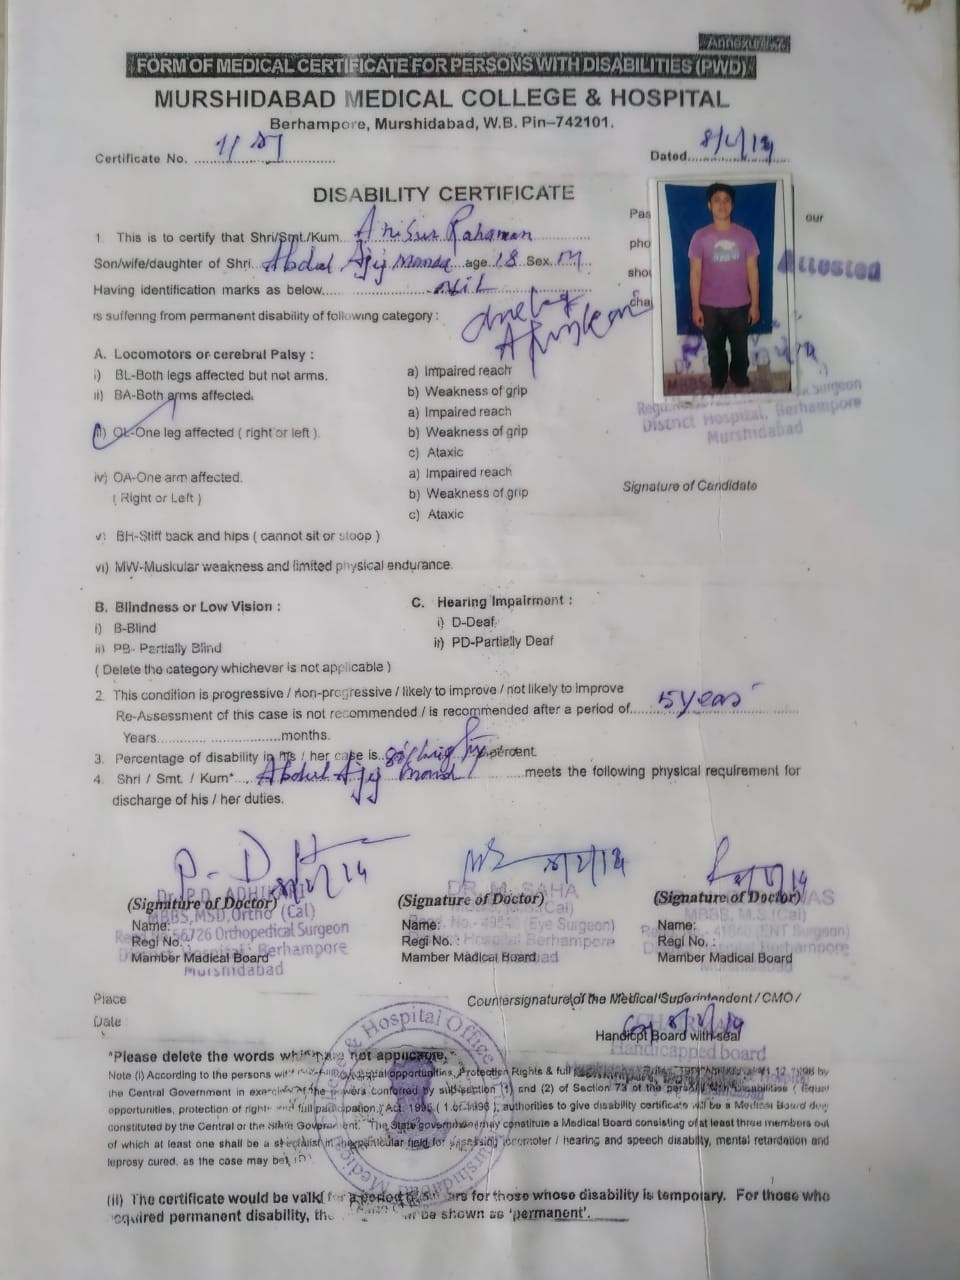 Annexure-7
FORM OF MEDICAL CERTIFICATE FOR PERSONS WITH DISABILITIES (PWD)
MURSHIDABAD MEDICAL COLLEGE & HOSPITAL
Berhampore, Murshidabad, W.B. Pin–742101.
Certificate No.
Dated
DISABILITY CERTIFICATE
1. This is to certify that Shri/Smt./Kum. Anisur Rahaman
Son/wife/daughter of Shri. Abdul Ajij Mondal age 18 Sex. M
Having identification marks as below. Nil
is suffering from permanent disability of following category :
Pas
our
pho
shou
cha
Attested
A. Locomotors or cerebral Palsy :
i) BL-Both legs affected but not arms.
a) Impaired reach
ii) BA-Both arms affected.
b) Weakness of grip
a) Impaired reach
iii) OL-One leg affected ( right or left ).
b) Weakness of grip
c) Ataxic
iv) OA-One arm affected.
a) Impaired reach
( Right or Left )
b) Weakness of grip
c) Ataxic
Surgeon
District Hospital, Berhampore
Murshidabad
Signature of Candidate
v) BH-Stiff back and hips ( cannot sit or stoop )
vi) MW-Muskular weakness and limited physical endurance.
B. Blindness or Low Vision :
i) B-Blind
ii) PB- Partially Blind
C. Hearing Impairment :
i) D-Deaf
ii) PD-Partially Deaf
( Delete the category whichever is not applicable )
2. This condition is progressive / non-progressive / likely to improve / not likely to improve
Re-Assessment of this case is not recommended / is recommended after a period of 5 years
Years months.
3. Percentage of disability in his / her case is percent.
4. Shri / Smt. / Kum* Abdul Ajij Mondal meets the following physical requirement for
discharge of his / her duties.
(Signature of Doctor)
Name:
Regi No.
Mamber Medical Board
Dr. P.D. ADHIKARI
MBBS, MSD, Ortho (Cal)
56726 Orthopedical Surgeon
Berhampore
Murshidabad
(Signature of Doctor)
Name:
Regi No. :
Mamber Medical Board
DR. M. SAHA
(Eye Surgeon)
Hospital Berhampore
(Signature of Doctor)
Name:
Regi No. :
Mamber Medical Board
MBBS, M.S.(Cal)
(ENT Surgeon)
Place
Date
Countersignature of the Medical Superintendent / CMO /
Handicpt Board with seal
Handicapped board
*Please delete the words which are not applicable.
Note (i) According to the persons with equal opportunities, Protection Rights & full
the Central Government in exercise of the powers conferred by sub-section (1) and (2) of Section 73 of the persons with Disabilities ( Equal
opportunities, protection of rights and full participation ) Act. 1995 ( 1 of 1996 ), authorities to give disability certificate will be a Medical Board duly
constituted by the Central or the State Goverment. The State government may constitute a Medical Board consisting of at least three members out
of which at least one shall be a specialist in the particular field for assessing locomoter / hearing and speech disability, mental retardation and
leprosy cured, as the case may be.
(ii) The certificate would be valid for a period of years for those whose disability is temporary. For those who
acquired permanent disability, the be shown as 'permanent'.